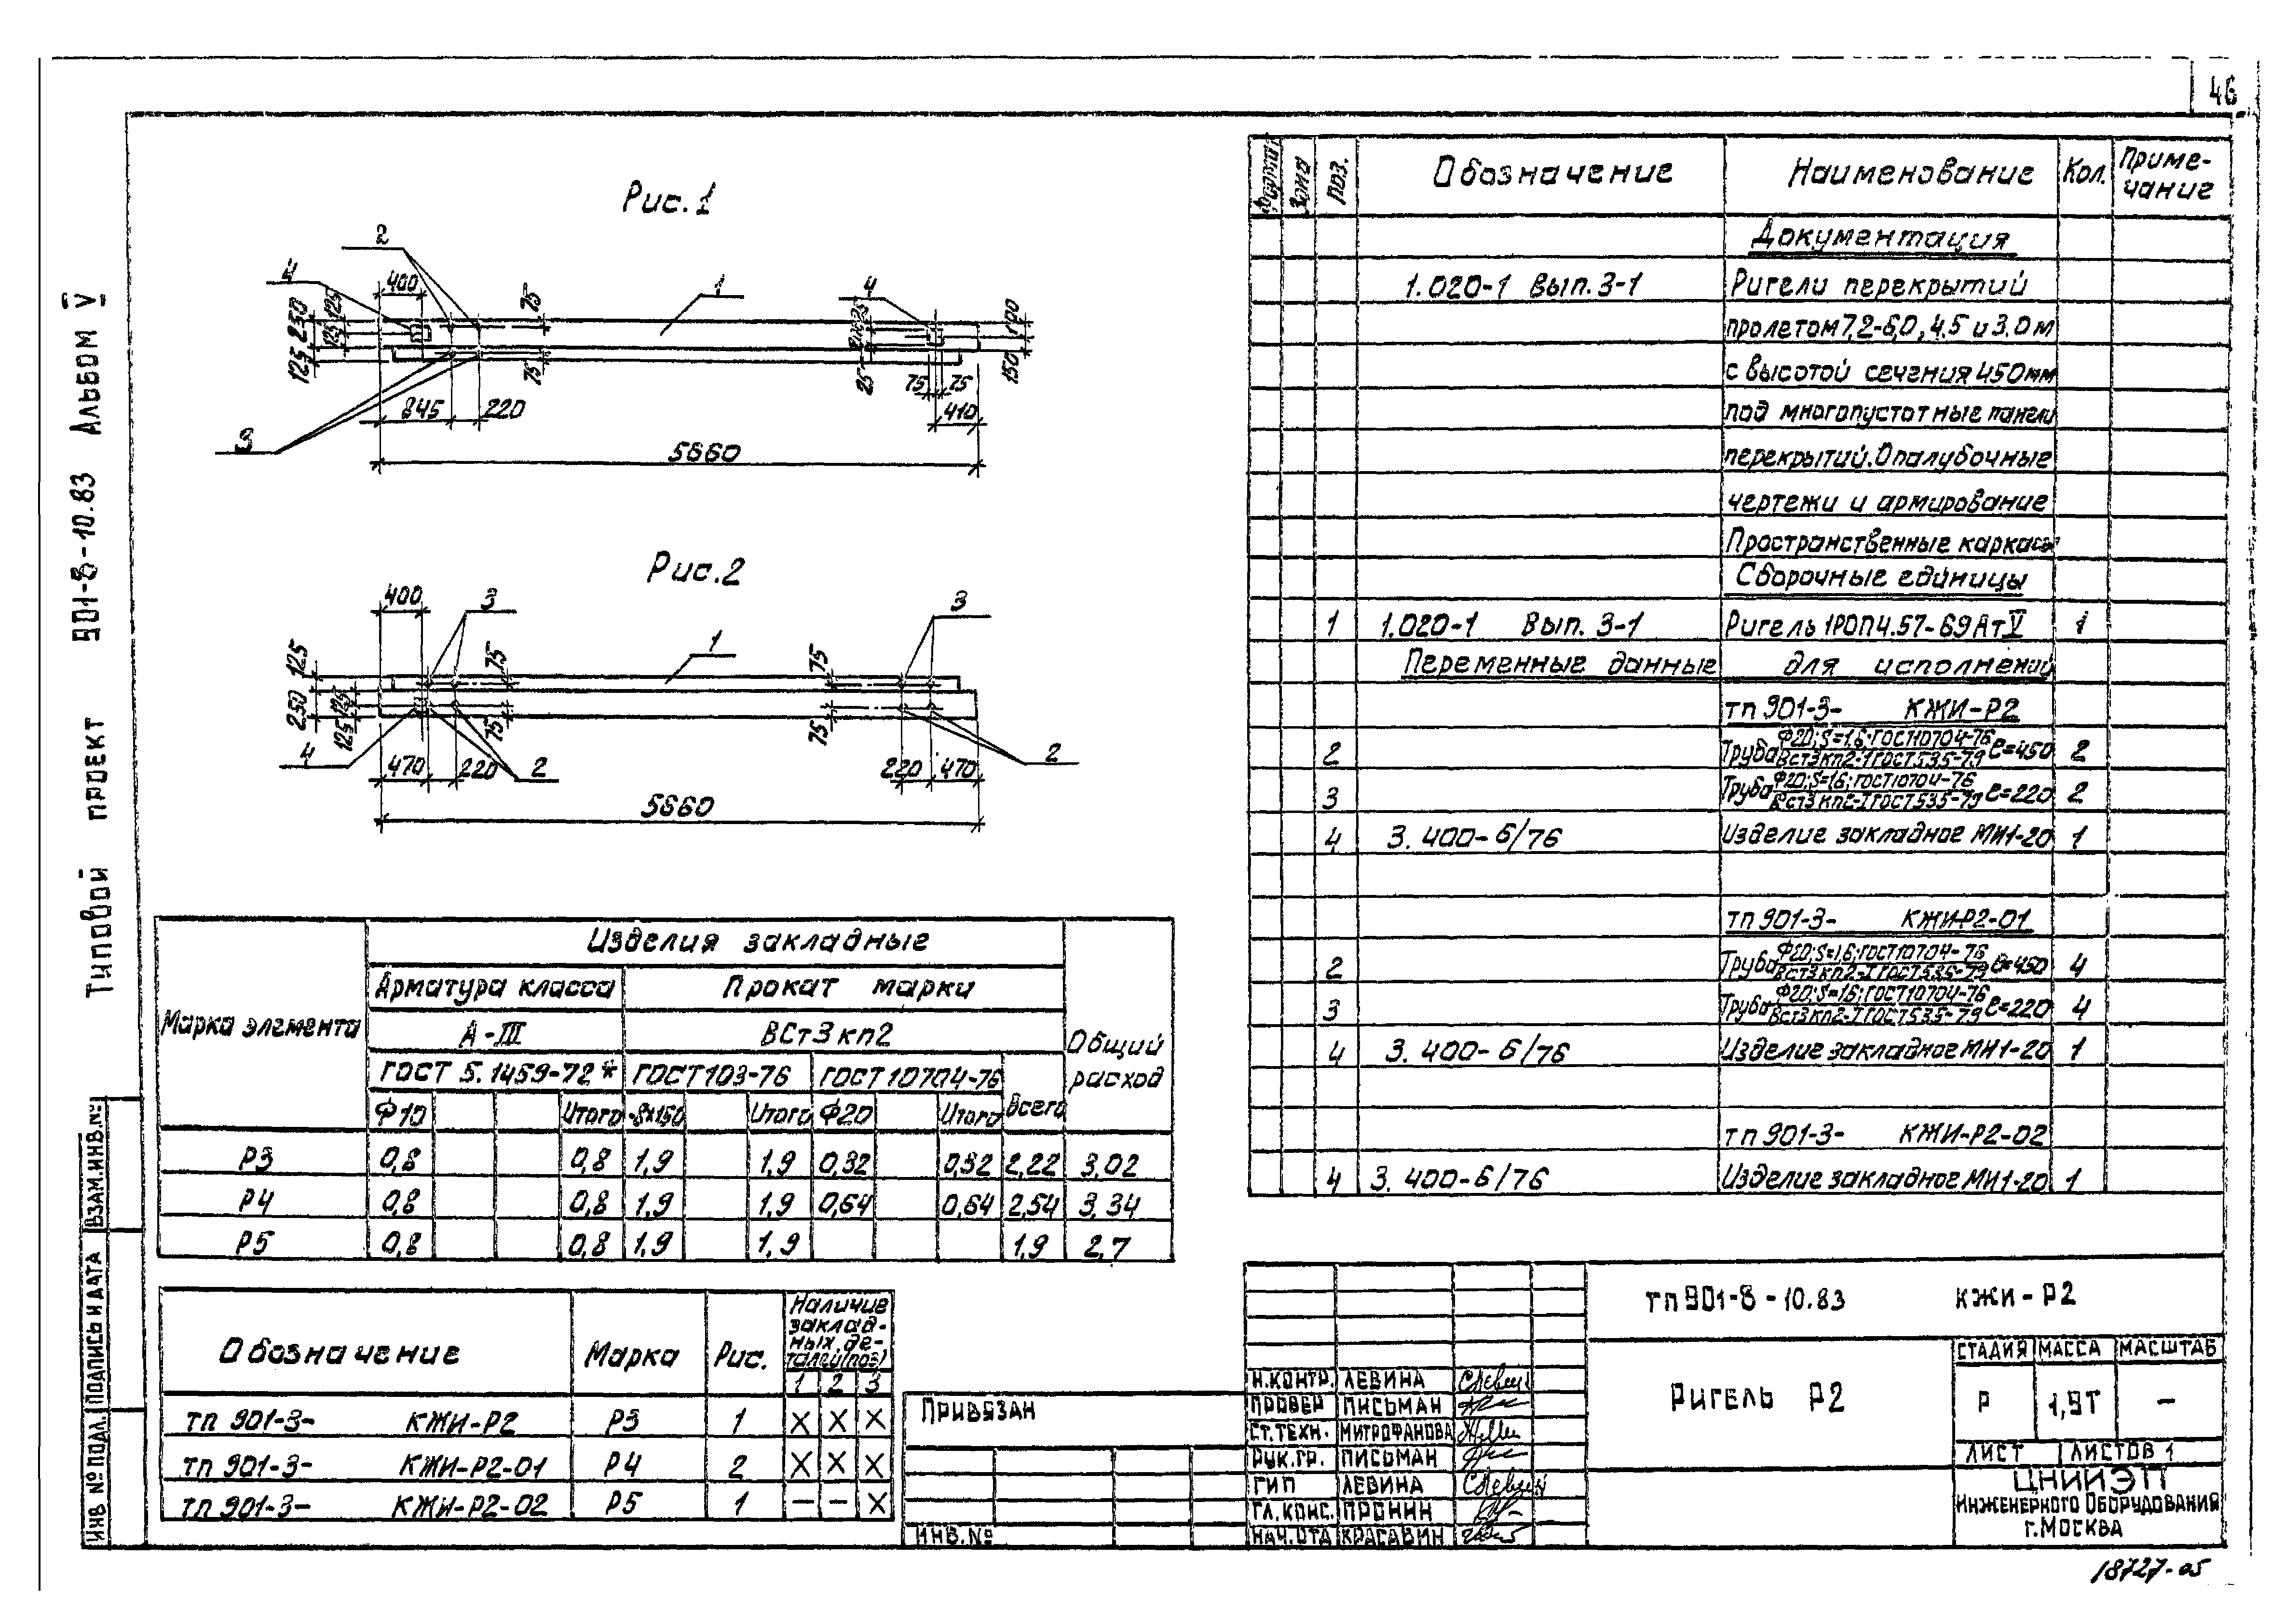 46
Типовой проект 901-8-10.83 Альбом V
Рис. 1
2
4
400
1
4
75
125
250
125
125
75
25
75
75
100
150
845
220
410
3
5660
Рис. 2
400
3
3
1
125
250
125
125
75
75
75
75
4
470
220
2
220
470
2
5660
Марка элемента
Изделия закладные
Общий расход
Арматура класса
Прокат марки
А-III
ВСт3кп2
ГОСТ 5.1459-72*
ГОСТ 103-76
ГОСТ 10704-76
Всего
Ф10 Итого -8х150 Итого Ф20 Итого
Р3 0,8 0,8 1,9 1,9 0,32 0,32 2,22 3,02
Р4 0,8 0,8 1,9 1,9 0,64 0,64 2,54 3,34
Р5 0,8 0,8 1,9 1,9 1,9 2,7
Обозначение Марка Рис.
Наличие
заклад-
ных де-
талей (поз)
1 2 3
тп 901-3- КЖИ-Р2 Р3 1 X X X
тп 901-3- КЖИ-Р2-01 Р4 2 X X X
тп 901-3- КЖИ-Р2-02 Р5 1 – – X
Формат Зона Поз. Обозначение Наименование Кол. Приме-
чание
Документация
1.020-1 Вып. 3-1 Ригели перекрытий
пролетом 7,2-6,0, 4.5 и 3.0 м
с высотой сечения 450мм
под многопустотные панели
перекрытий. Опалубочные
чертежи и армирование
Пространственные каркасы
Сборочные единицы
1 1.020-1 Вып. 3-1 Ригель 1РОП4.57-69АтV 1
Переменные данные для исполнений
тп 901-3- КЖИ-Р2
2 Труба Ф20; S=1,6; ГОСТ10704-76 ВСт3кп2-I ГОСТ535-79 ℓ=450 2
3 Труба Ф20; S=1,6; ГОСТ10704-76 ВСт3кп2-I ГОСТ535-79 ℓ=220 2
4 3.400-6/76 Изделие закладное МИ1-20 1
тп 901-3- КЖИ-Р2-01
2 Труба Ф20; S=1,6; ГОСТ10704-76 ВСт3кп2-I ГОСТ535-79 ℓ=450 4
3 Труба Ф20; S=1,6; ГОСТ10704-76 ВСт3кп2-I ГОСТ535-79 ℓ=220 4
4 3.400-6/76 Изделие закладное МИ1-20 1
тп 901-3- КЖИ-Р2-02
4 3.400-6/76 Изделие закладное МИ1-20 1
тп 901-8-10.83 КЖИ-Р2
Н.КОНТР. ЛЕВИНА
ПРОВЕР ПИСЬМАН
СТ.ТЕХН. МИТРОФАНОВА
РУК.ГР. ПИСЬМАН
ГИП ЛЕВИНА
ГЛ.КОНС. ПРОНИН
НАЧ.ОТД КРАСАВИН
Ригель Р2
СТАДИЯ МАССА МАСШТАБ
Р 1,9Т –
ЛИСТ ЛИСТОВ 1
ЦНИИЭП
ИНЖЕНЕРНОГО ОБОРУДОВАНИЯ
г. МОСКВА
ПРИВЯЗАН
ИНВ.№
ИНВ № ПОДЛ. ПОДПИСЬ И ДАТА ВЗАМ.ИНВ.№
18727-05